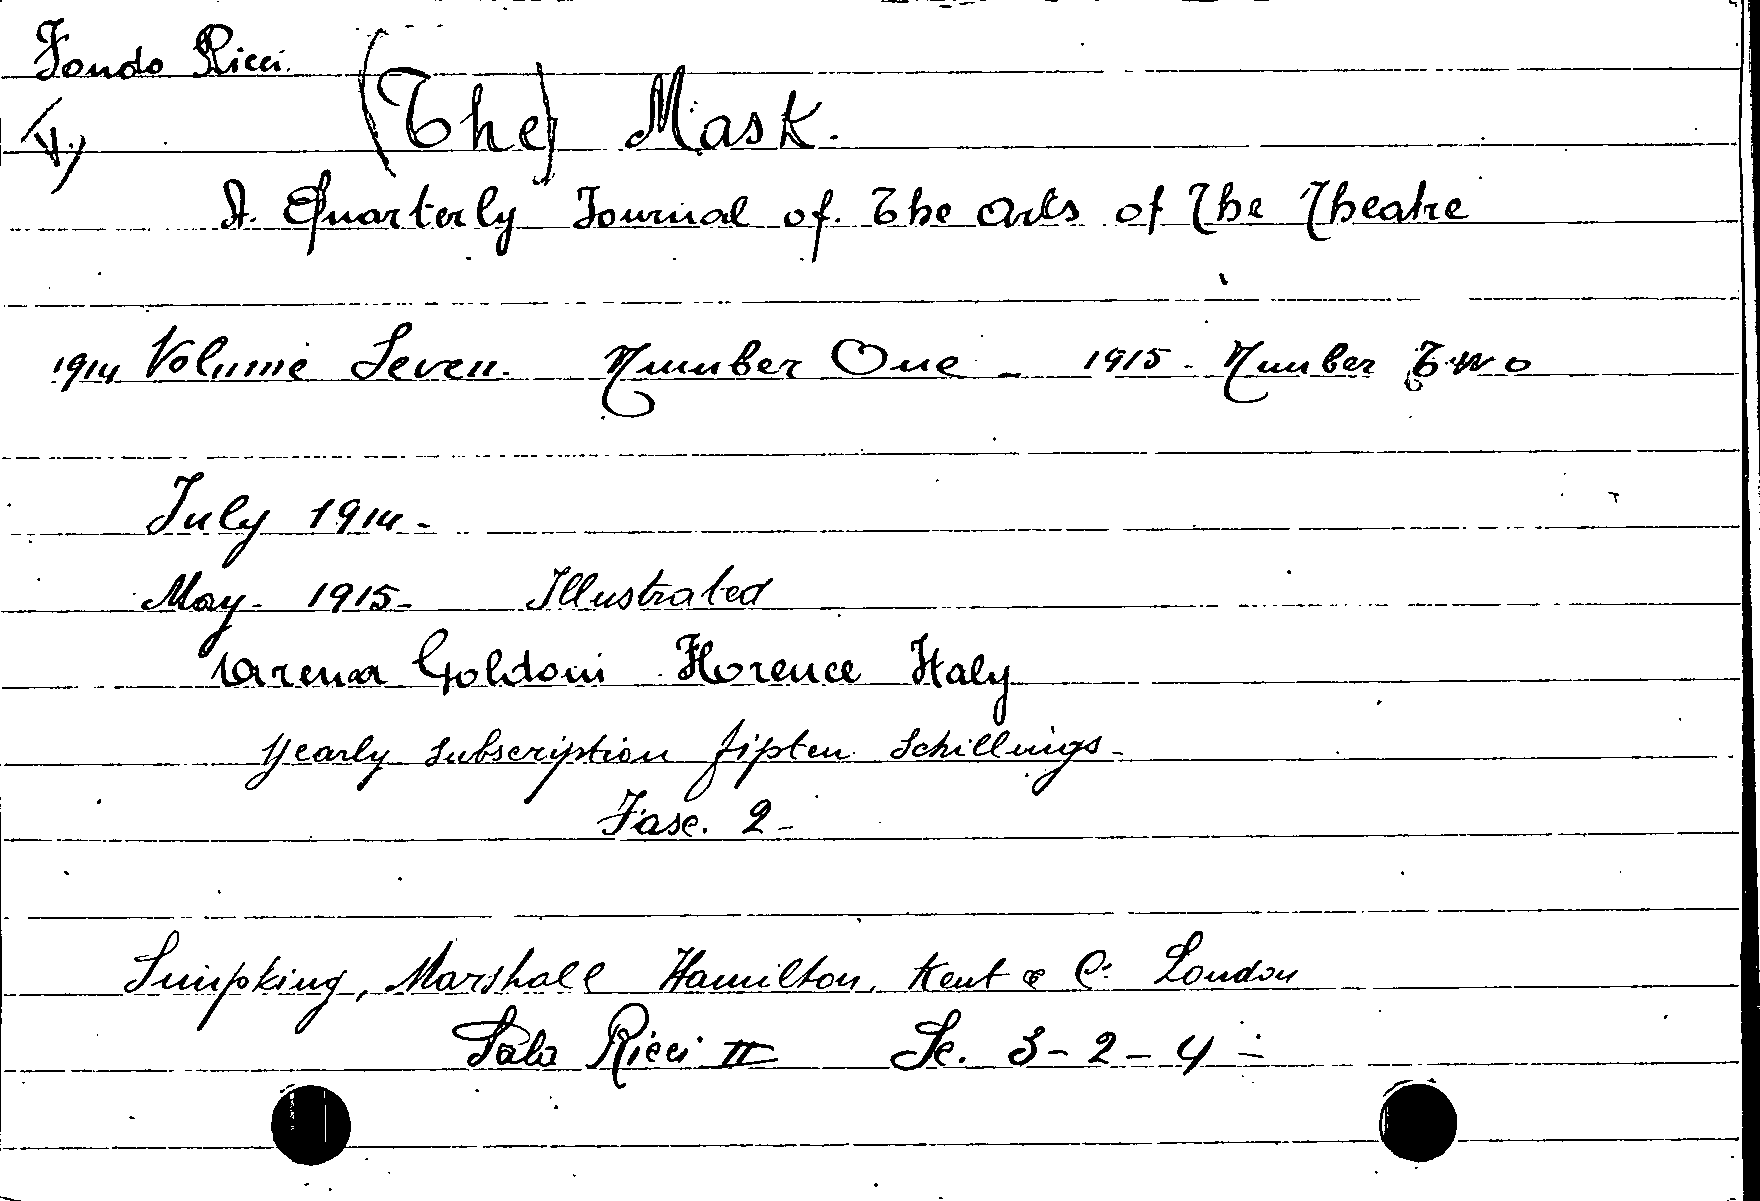 Fondo Ricci.
(The) Mask.
A. Quarterly Journal of. The Arts of The Theatre
1914 Volume Seven. Number One - 1915 - Number Two
July 1914 -
May - 1915 - Illustrated
Arena Goldoni Florence Italy
Yearly subscription fipten schillings -
Fasc. 2 -
Simpking, Marshall Hamilton, Kent & C. London
Sala Ricci II Sc. 3 - 2 - 4 -